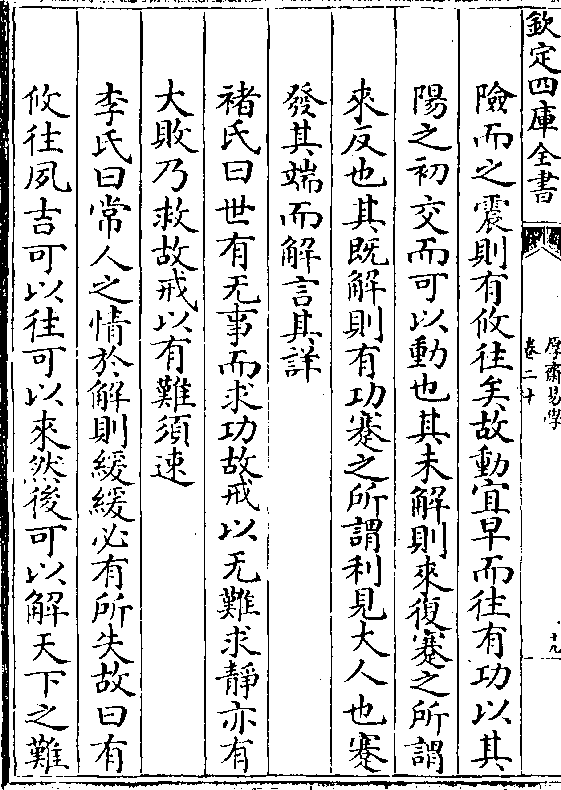 欽定四庫全書
厚齋易學
卷二十
十九
險而之震則有攸往矣故動宜早而往有功以其
陽之初交而可以動也其未解則來復蹇之所謂
來反也其既解則有功蹇之所謂利見大人也蹇
發其端而解言其詳
褚氏曰世有无事而求功故戒以无難求靜亦有
大敗乃救故戒以有難須速
李氏曰常人之情於解則緩緩必有所失故曰有
攸往夙吉可以往可以來然後可以解天下之難